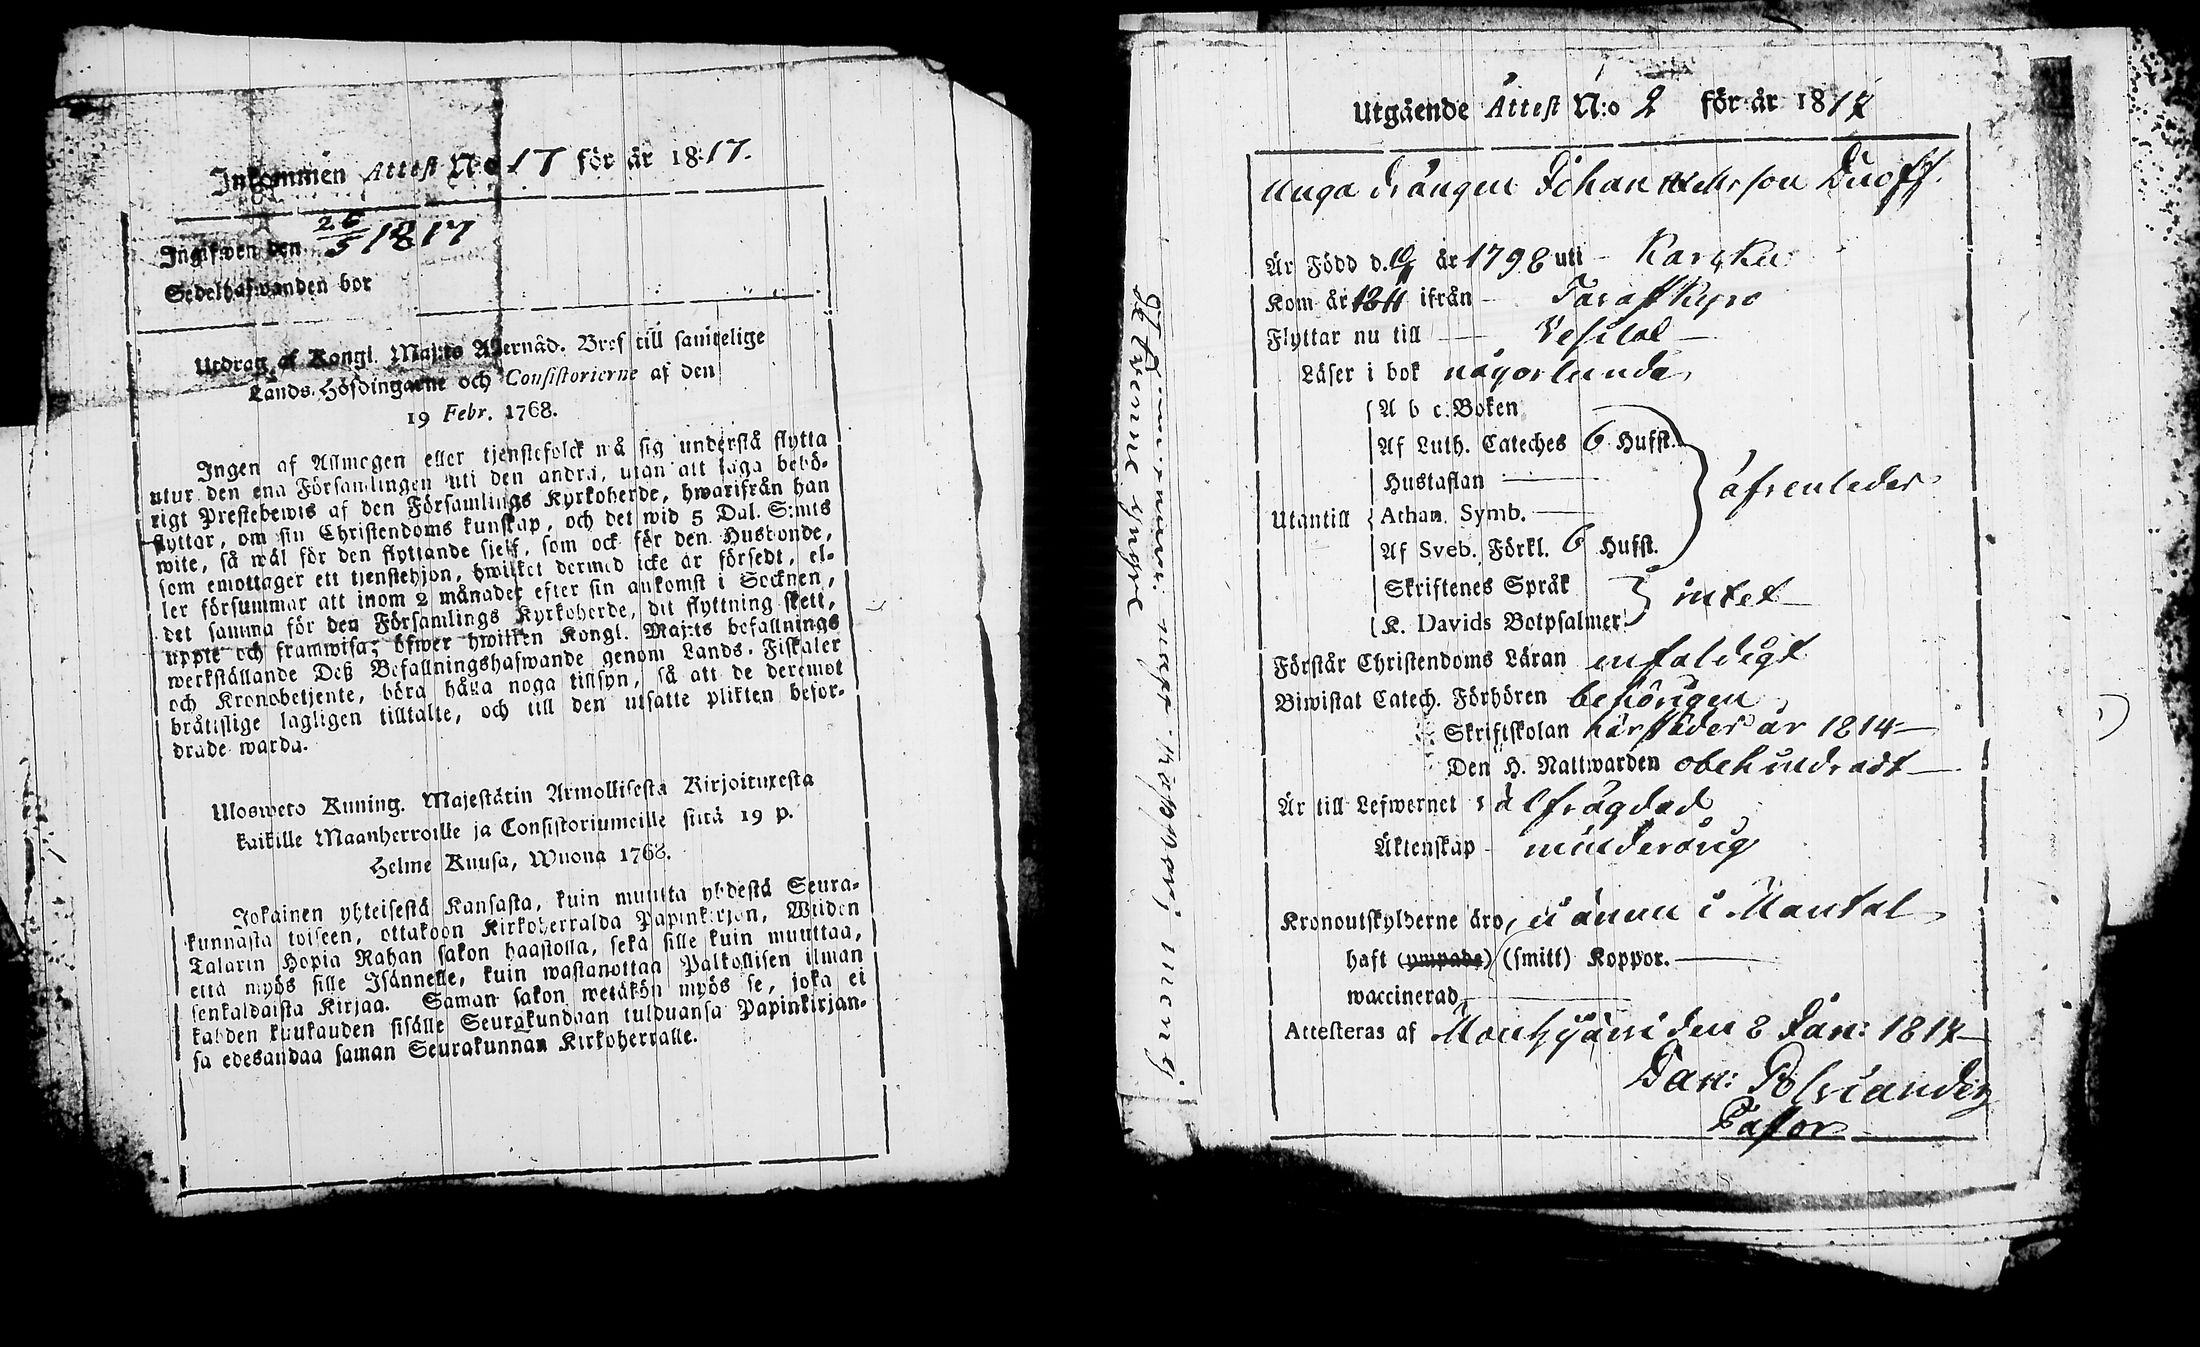 Inkommen Attest N:o 17 för år 1817.
Ingifwen den 26/5 1817
Sedelhafwanden bor
Utdrag af Kongl. Maj:ts Allernåd. Bref till samtelige
Lands-Höfdingarne och Consistorierne af den
19 Febr. 1768.
Ingen af Allmogen eller tjenstefolck må sig understå flytta
utur den ena Församlingen uti den andra, utan att taga behö-
rigt Prestebewis af den Församlings Kyrkoherde, hwarifrån han
flyttar, om sin Christendoms kunskap, och det wid 5 Dal. S:mts
wite, så wäl för den flyttande sjelf, som ock för den Husbonde,
som emottager ett tjenstehjon, hwilket dermed icke är försedt, el-
ler försummar att inom 2 månader efter sin ankomst i Socknen,
det samma för den Församlings Kyrkoherde, dit flyttning skett,
uppte och framwisa; öfwer hwilken Kongl. Maj:ts befallnings
werkställande Deß Befallningshafwande genom Lands-Fiskaler
och Kronobetjente, böra hålla noga tillsyn, så att de deremot
bråtislige lagligen tilltalte, och till den utsatte plikten befor-
drade warda.
Ulosweto Kuning. Majestätin Armollisesta Kirjoituxesta
kaikille Maanherroille ja Consistoriumeille siitä 19 p.
Helme Kuusa, Wuona 1768.
Jokainen yhteisestä Kansasta, kuin muutta yhdestä Seura-
kunnasta toiseen, ottakoon Kirkoherralda Papinkirjan, Wiiden
Talarin Hopia Rahan sakon haastolla, sekä sille kuin muuttaa,
että myös sille Isännelle, kuin wastanottaa Palkollisen ilman
senkaldaista Kirjaa. Saman sakon wetäkön myös se, joka ei
kahden kuukauden sisälle Seurakundaan tulduansa Papinkirjan-
sa edesandaa saman Seurakunnan Kirkoherralle.
Utgående Attest N:o 2 för år 1817
unga drängen Johan Duoff.
Är Född d. år 1798 uti Karrku
Kom år 1811 ifrån Tavastkyro
Flyttar nu till Vesilax
Läser i bok någorlunda
A b c. Boken
Af Luth. Cateches 6 Hufst.
Hustaflan
Utantill Athan. Symb. äfvenledes
Af Sveb. Förkl. 6 Hufst.
Skriftenes Språk intet
K. Davids Botpsalmer
Förstår Christendoms Läran enfaldigt
Biwistat Catech. Förhören behörigen
Skriftskolan härstädes år 1814
Den H. Nattwarden obehindradt
Är till Lefwernet oälfrägdad
Äktenskap minderårig
Kronoutskylderne äro, ännu i Mantal
haft (ympade) (smitt) Koppor.
waccinerad
Attesteras af Mouhijärvi den 8 Jan: 1817
Dan: Polviander
Pastor